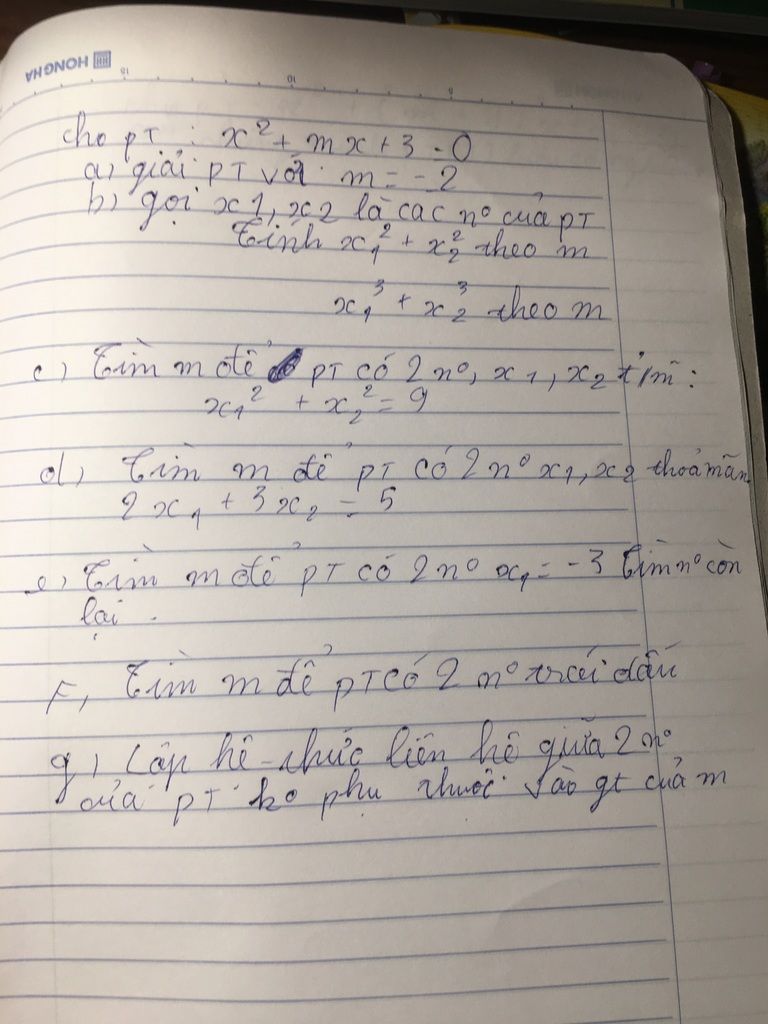 HONG HA
15 10 5
cho pT : x² + mx + 3 = 0
a, giải PT với m = -2
b, gọi x1, x2 là các nº của pT
Tính x₁² + x₂² theo m
x₁³ + x₂³ theo m
c, Tìm m để pT có 2 nº, x₁, x₂ t/m :
x₁² + x₂² = 9
d, Tìm m để pT có 2 nº x₁, x₂ thoả mãn
2x₁ + 3x₂ = 5
e, Tìm m để pT có 2 nº x₁ = -3 Tìm nº còn
lại .
F, Tìm m để pT có 2 nº trái dấu
g, Lập hê thức liên hê giữa 2 nº
của pT ko phụ thuôc vào gt của m